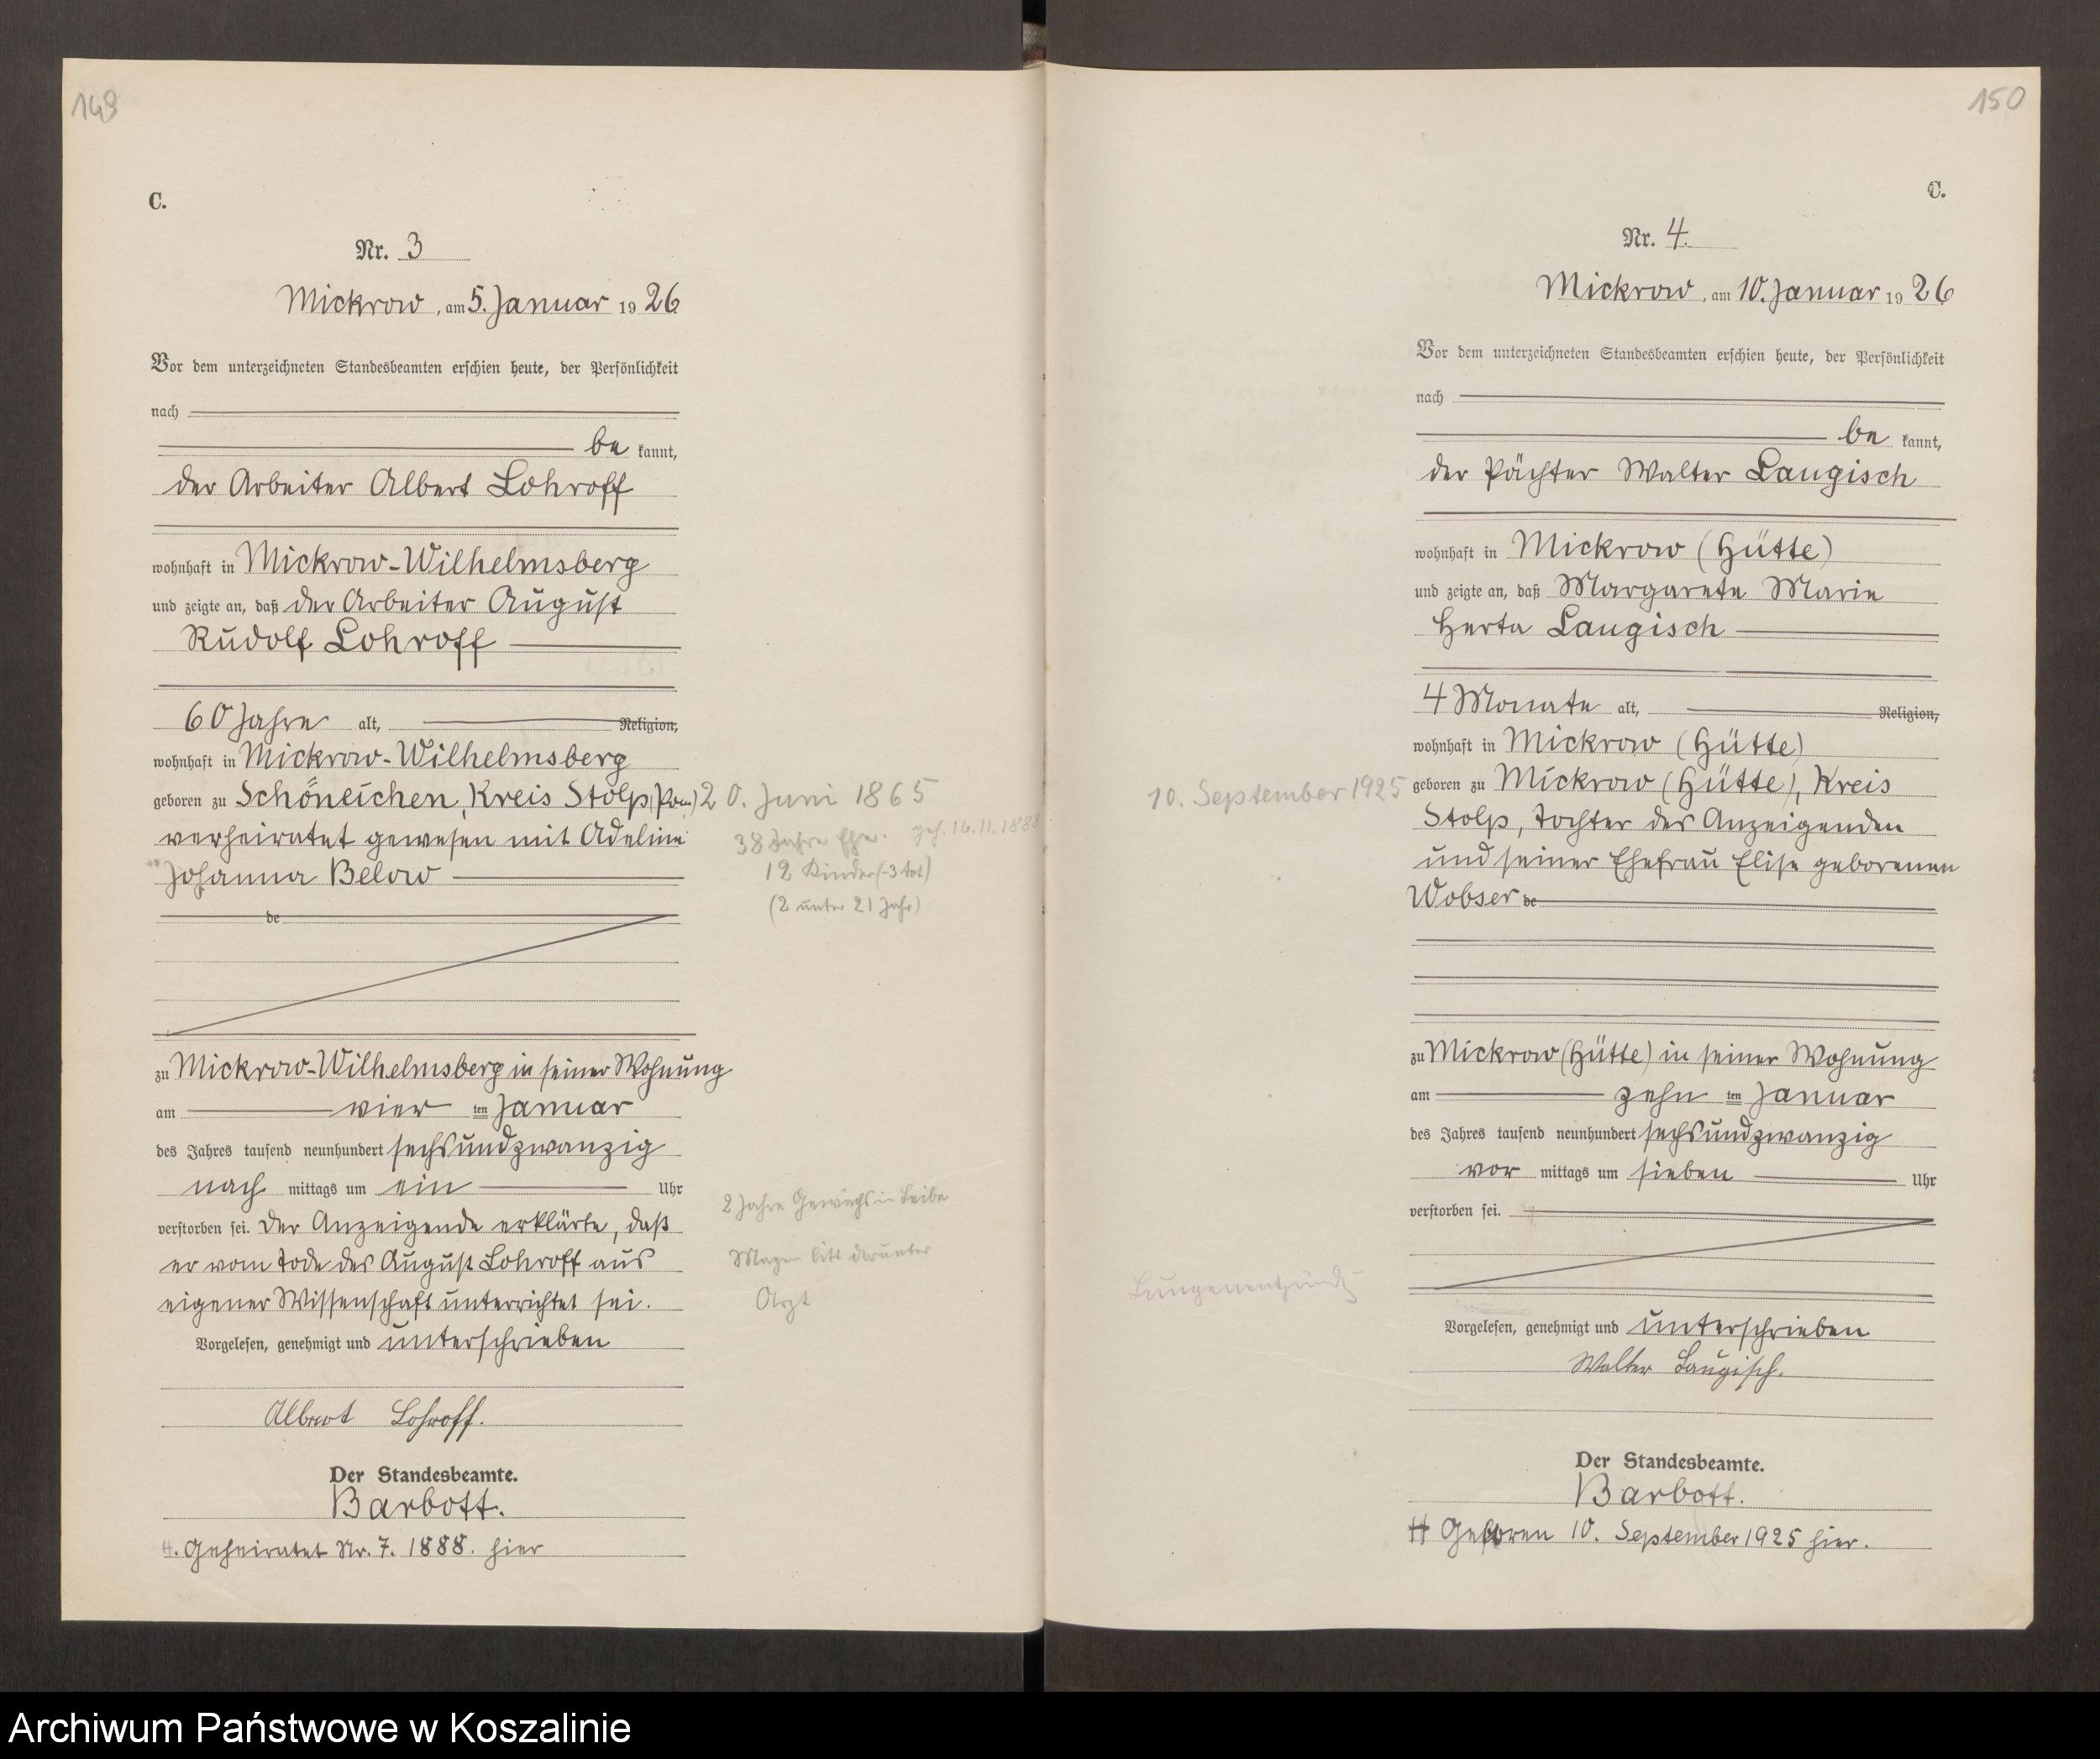 149
C.
Nr. 3
Mickrow, am 5. Januar 1926
Vor dem unterzeichneten Standesbeamten erschien heute, der Persönlichkeit
nach
be kannt,
der Arbeiter Albert Lohroff
wohnhaft in Mickrow-Wilhelmsberg
und zeigte an, daß der Arbeiter August
Rudolf Lohroff
60 Jahre alt, Religion,
wohnhaft in Mickrow-Wilhelmsberg
geboren zu Schöneichen, Kreis Stolp (Pom.)
verheiratet gewesen mit Adeline
Johanna Below
de
zu Mickrow-Wilhelmsberg in seiner Wohnung
am vier ten Januar
des Jahres tausend neunhundert sechsundzwanzig
nach mittags um ein Uhr
verstorben sei. Der Anzeigende erklärte, daß
er vom Tode des August Lohroff aus
eigener Wissenschaft unterrichtet sei.
Vorgelesen, genehmigt und unterschrieben
Albert Lohroff.
Der Standesbeamte.
Barbott.
H. Geheiratet Nr. 7. 1888. hier
20. Juni 1865
38 Jahre Ehe. geh. 16.11.1888
12 Kinder (-3 tot)
(2 unter 21 Jahr)
2 Jahre Gewächs in Leibe
Magen litt darunter
Arzt
150
C.
Nr. 4.
Mickrow, am 10. Januar 1926
Vor dem unterzeichneten Standesbeamten erschien heute, der Persönlichkeit
nach
be kannt,
der Pächter Walter Laugisch
wohnhaft in Mickrow (Hütte)
und zeigte an, daß Margarete Marie
Herta Laugisch
4 Monate alt, Religion,
wohnhaft in Mickrow (Hütte)
geboren zu Mickrow (Hütte), Kreis
Stolp, Tochter des Anzeigenden
und seiner Ehefrau Elise geborenen
Wobser de
zu Mickrow (Hütte) in seiner Wohnung
am zehn ten Januar
des Jahres tausend neunhundert sechsundzwanzig
vor mittags um sieben Uhr
verstorben sei.
Vorgelesen, genehmigt und unterschrieben
Walter Laugisch.
Der Standesbeamte.
Barbott.
H Geboren 10. September 1925 hier.
10. September 1925
Lungenentzündg
Archiwum Państwowe w Koszalinie